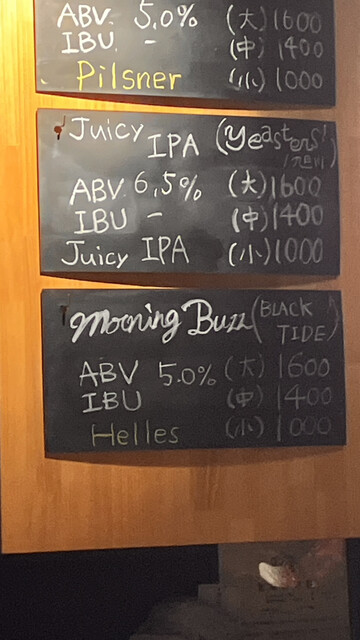 ABV. 5.0% (大) 1600
IBU. - (中) 1400
Pilsner (小) 1000
Juicy IPA (Yeasters'
ABV. 6.5% (大) 1600
IBU - (中) 1400
Juicy IPA (小) 1000
Mooning Buzz (BLACK TIDE)
ABV 5.0% (大) 1600
IBU (中) 1400
Helles (小) 1000